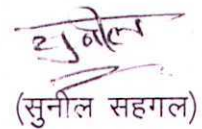 सुनील
(सुनील सहगल)